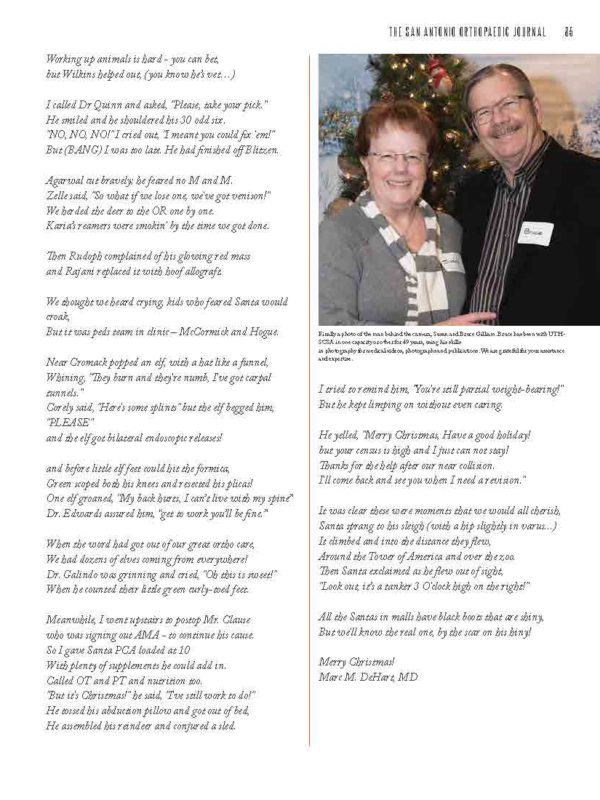 THE SAN ANTONIO ORTHOPAEDIC JOURNAL 36
Working up animals is hard - you can bet,
but Wilkins helped out, (you know he's vet…)
I called Dr Quinn and asked, "Please, take your pick."
He smiled and he shouldered his 30 odd six.
"NO, NO, NO!" I cried out, "I meant you could fix 'em!"
But (BANG) I was too late. He had finished off Blitzen.
Agarwal cut bravely; he feared no M and M.
Zelle said, "So what if we lose one, we've got venison!"
We herded the deer to the OR one by one.
Karia's reamers were smokin' by the time we got done.
Then Rudoph complained of his glowing red mass
and Rajani replaced it with hoof allograft.
We thought we heard crying, kids who feared Santa would
croak,
But it was peds team in clinic – McCormick and Hogue.
Near Cromack popped an elf, with a hat like a funnel,
Whining, "They burn and they're numb, I've got carpal
tunnels."
Corely said, "Here's some splints" but the elf begged him,
"PLEASE"
and the elf got bilateral endoscopic releases!
and before little elf feet could hit the formica,
Green scoped both his knees and resected his plicas!
One elf groaned, "My back hurts, I can't live with my spine"
Dr. Edwards assured him, "get to work you'll be fine."
When the word had got out of our great ortho care,
We had dozens of elves coming from everywhere!
Dr. Galindo was grinning and cried, "Oh this is sweet!"
When he counted their little green curly-toed feet.
Meanwhile, I went upstairs to postop Mr. Clause
who was signing out AMA - to continue his cause.
So I gave Santa PCA loaded at 10
With plenty of supplements he could add in.
Called OT and PT and nutrition too.
"But it's Christmas!" he said, "I've still work to do!"
He tossed his abduction pillow and got out of bed,
He assembled his reindeer and conjured a sled.
Bruce
Finally a photo of the man behind the camera, Susan and Bruce Gilliam. Bruce has been with UTH-
SCSA in one capacity or other for 49 years, using his skills
in photography for medical videos, photographs and publications. We are grateful for your assistance
and expertise.
I tried to remind him, "You're still partial weight-bearing!"
But he kept limping on without even caring.
He yelled, "Merry Christmas, Have a good holiday!
but your census is high and I just can not stay!
Thanks for the help after our near collision.
I'll come back and see you when I need a revision."
It was clear these were moments that we would all cherish,
Santa sprang to his sleigh (with a hip slightly in varus...)
It climbed and into the distance they flew,
Around the Tower of America and over the zoo.
Then Santa exclaimed as he flew out of sight,
"Look out, it's a tanker 3 O'clock high on the right!"
All the Santas in malls have black boots that are shiny,
But we'll know the real one, by the scar on his hiny!
Merry Christmas!
Marc M. DeHart, MD